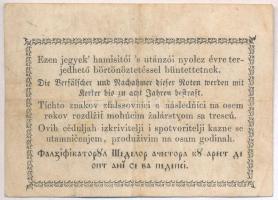 Ezen jegyek' hamisitói 's utánzói nyolcz évre ter-
jedhető börtönöztetéssel büntettetnek.
Die Verfälscher und Nachahmer dieser Noten werden mit
Kerker bis zu acht Jahren bestraft.
Tíchto znakov zfalssovníci a následníci na osem
rokov rozdlžiť mohúcim žalárstvom sa trescú.
Ovih ceduljah izkrivitelji i spotvoritelji kazne se
utamničenjem, produživim na osam godinah.